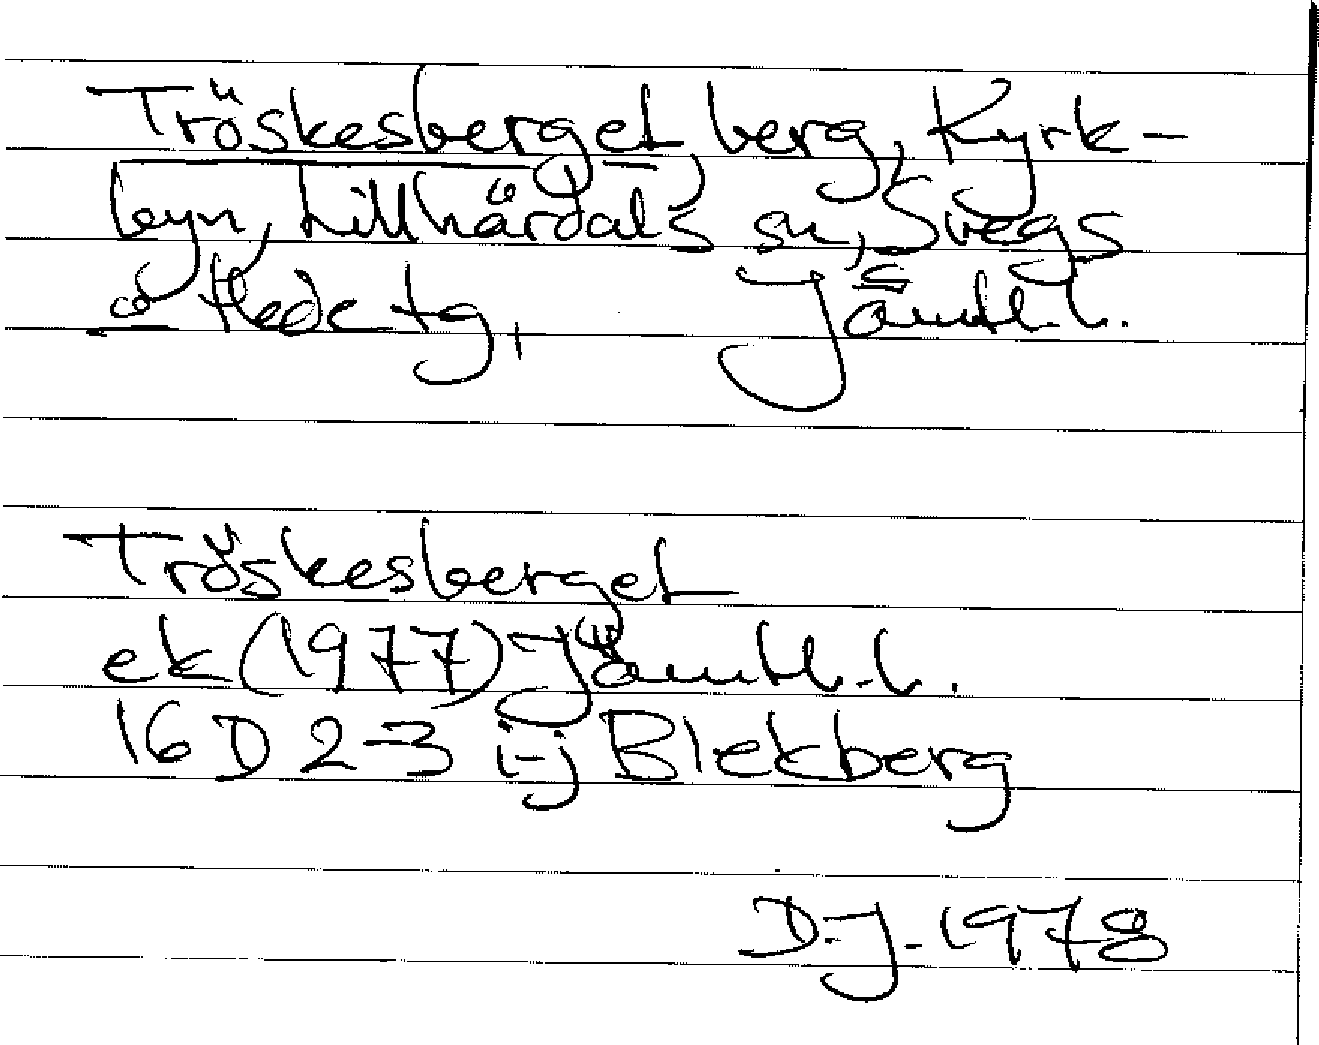 Tröskesberget, berg, Kyrk-
byn, Lillhärdals sn, Svegs
o Hede tg, Jämtl. l.
Tröskesberget
ek (1977) Jämtl. l.
16 D 2-3 i-j Blekberg
D.J. 1978